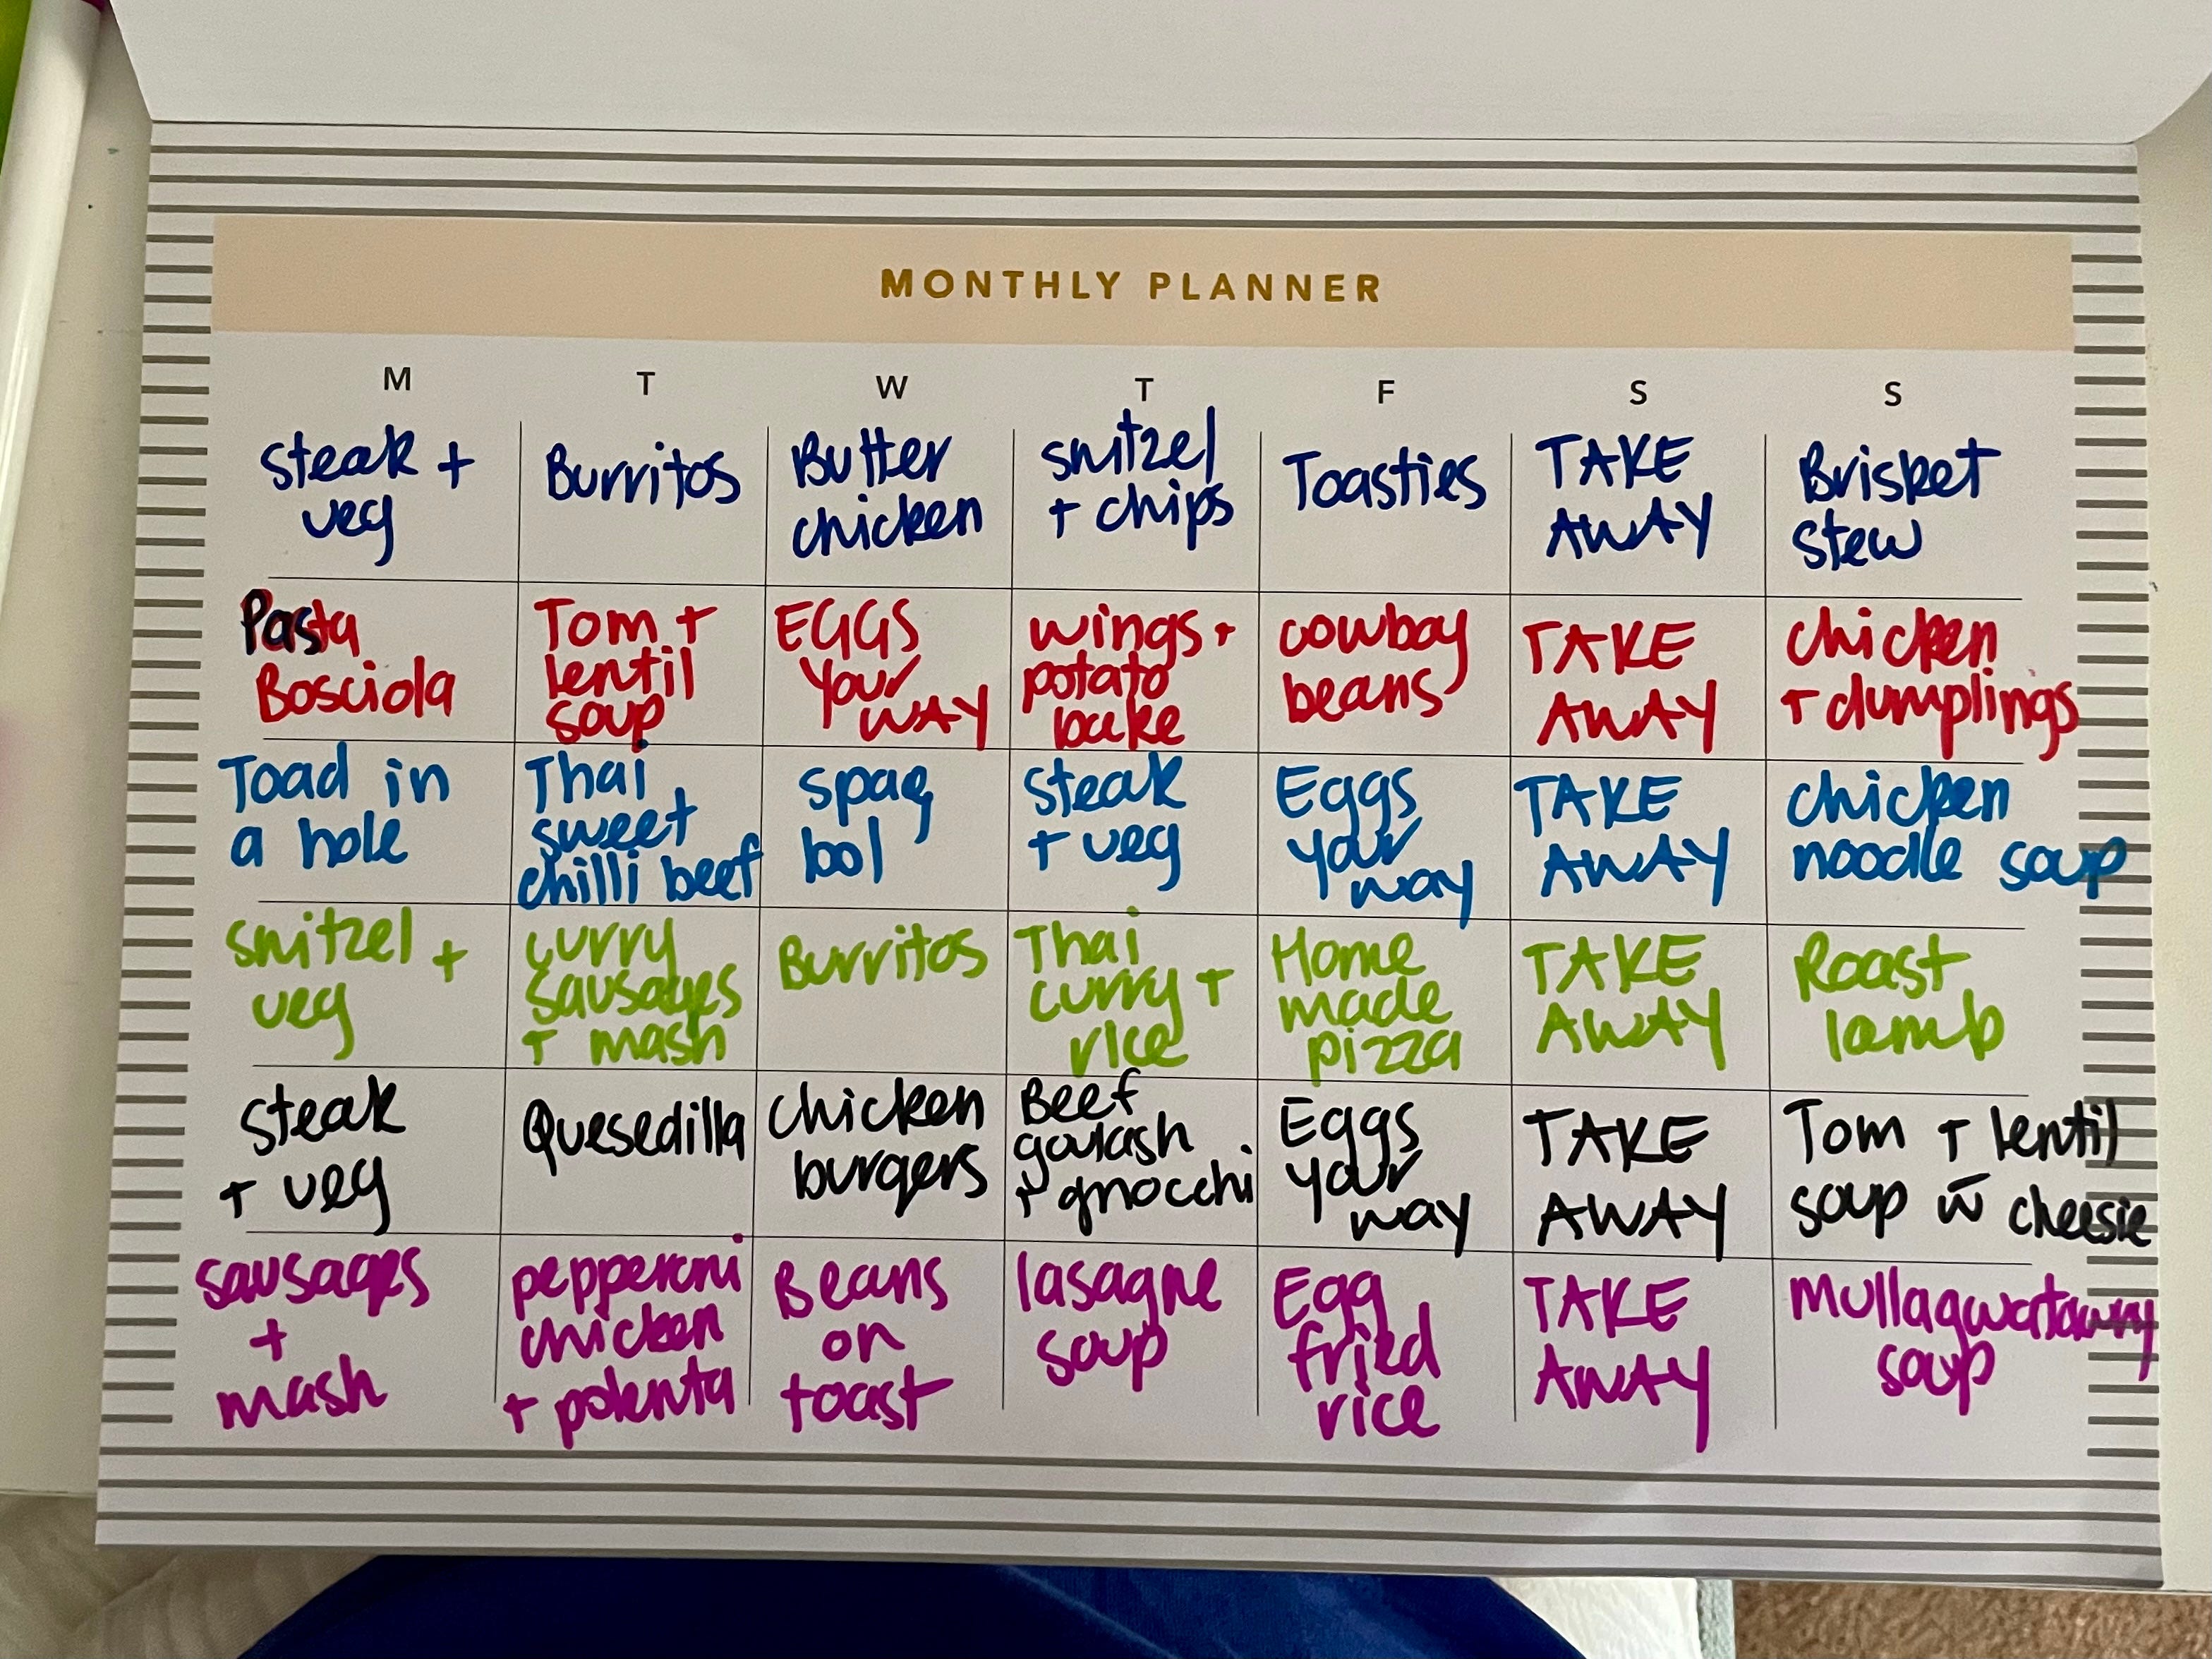 MONTHLY PLANNER
M T W T F S S
steak +
veg
Burritos
Butter
chicken
snitzel
+ chips
Toasties
TAKE
AWAY
Brisket
stew
Pasta
Bosciola
Tom +
lentil
soup
EGGS
Your
WAY
wings +
potato
bake
cowboy
beans
TAKE
AWAY
chicken
+ dumplings
Toad in
a hole
Thai
sweet
chilli beef
spag
bol
steak
+ veg
Eggs
your
way
TAKE
AWAY
chicken
noodle soup
snitzel +
veg
curry
sausages
+ mash
Burritos
Thai
curry +
rice
Home
made
pizza
TAKE
AWAY
Roast
lamb
steak
+ veg
Quesedilla
chicken
burgers
Beef
goulash
+ gnocchi
Eggs
your
way
TAKE
AWAY
Tom + lentil
soup w̄ cheesie
sausages
+
mash
pepperoni
chicken
+ polenta
Beans
on
toast
lasagne
soup
Egg
fried
rice
TAKE
AWAY
Mullagwatawny
soup